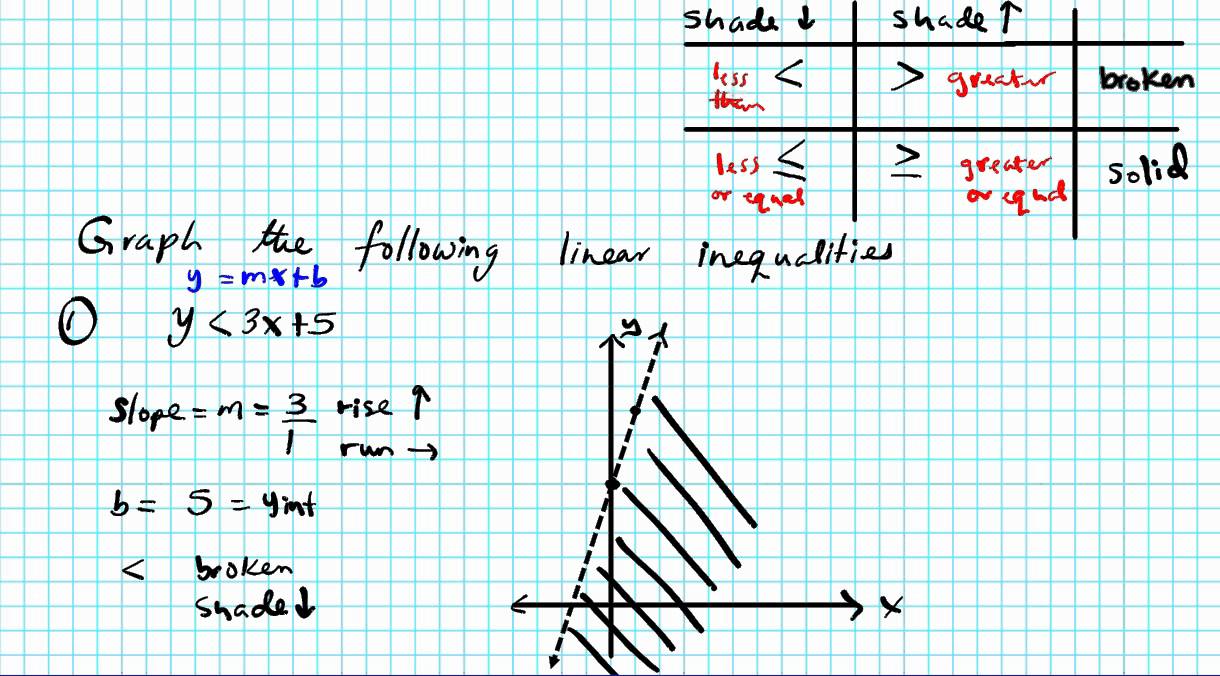 shade ↓ shade ↑
less < > greater broken
than
less ≤ ≥ greater solid
or equal or equal
Graph the following linear inequalities
y = mx+b
① y < 3x+5
y
slope = m = 3/1 rise ↑
run →
b = 5 = yint
< broken
shade ↓
x